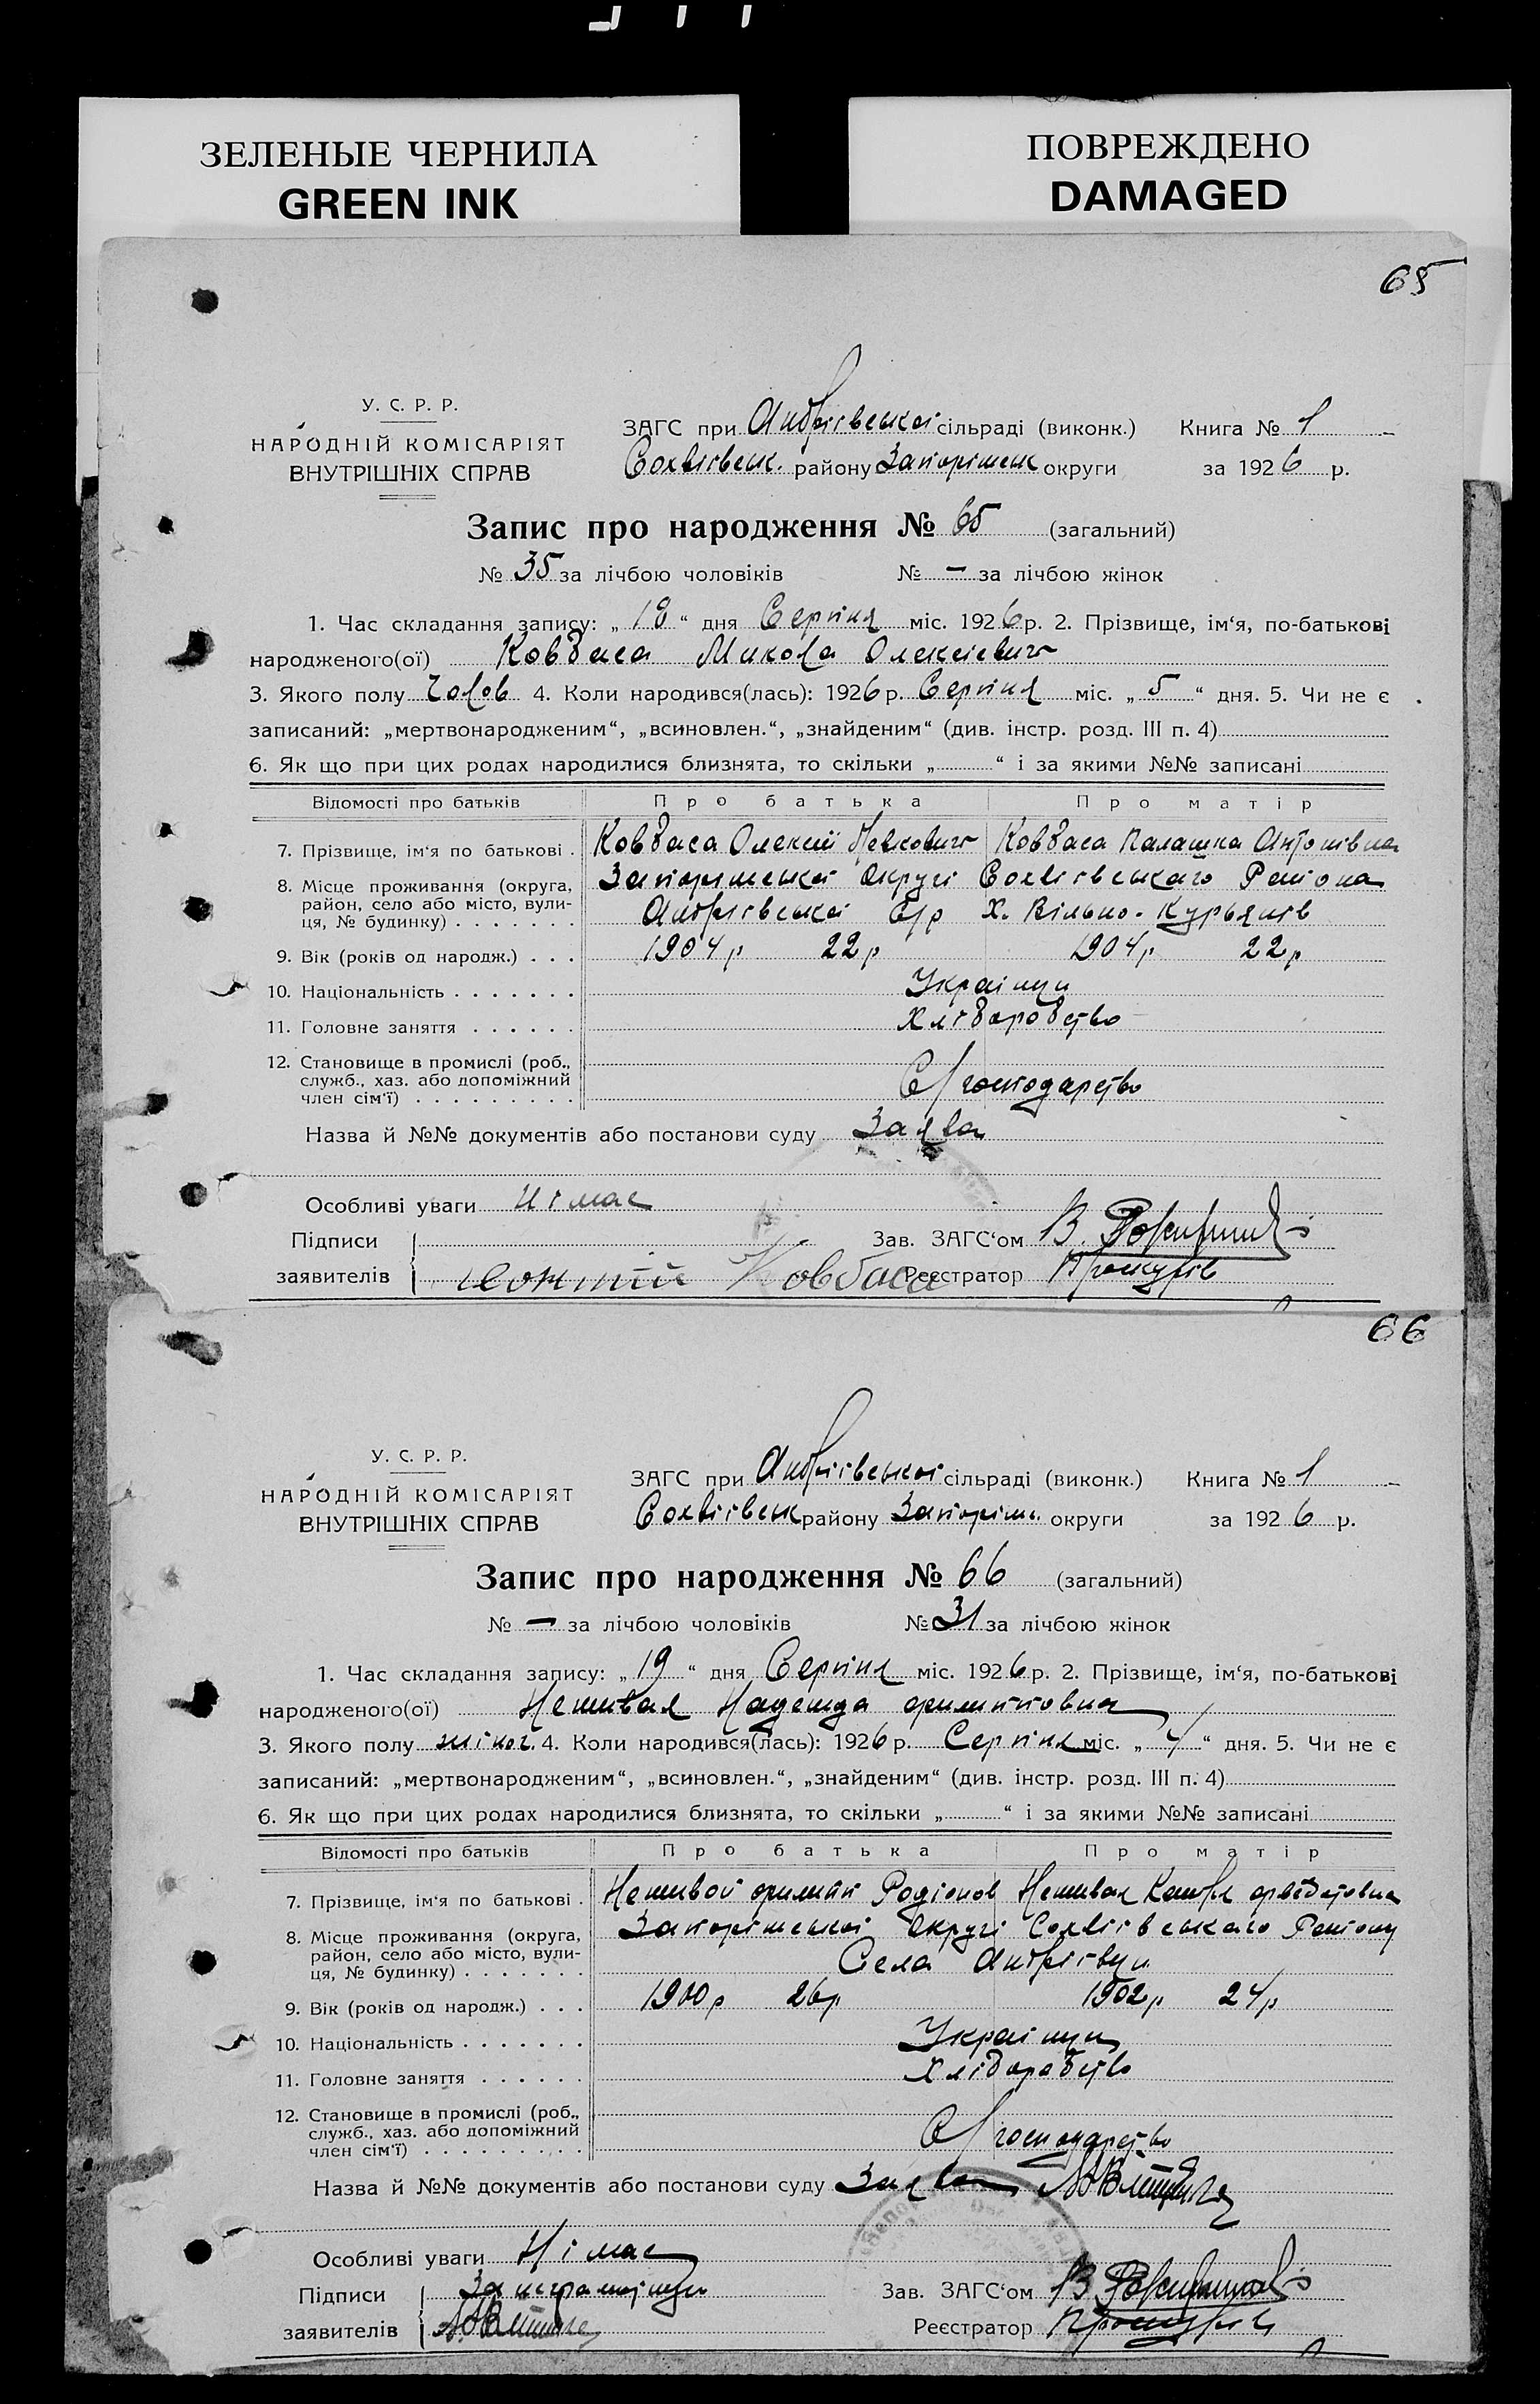 ЗЕЛЕНЫЕ ЧЕРНИЛА
GREEN INK
ПОВРЕЖДЕНО
DAMAGED
65
У. С. Р. Р.
НАРОДНІЙ КОМІСАРІЯТ
ВНУТРІШНІХ СПРАВ
ЗАГС при Андріївської сільраді (виконк.) Книга № 1
району Запоріжськ округи за 1926 р.
Запис про народження № 65 (загальний)
№ 35 за лічбою чоловіків № — за лічбою жінок
1. Час складання запису: „ 18 “ дня Серпня міс. 1926 р. 2. Прізвище, ім‘я, по-батькові
народженого(ої) Ковбаса Микола Олексієвич
3. Якого полу Чолов 4. Коли народився(лась): 1926 р. Серпня міс. „ 5 “ дня. 5. Чи не є
записаний: „мертвонародженим“, „всиновлен.“, „знайденим“ (див. інстр. розд. III п. 4)
6. Як що при цих родах народилися близнята, то скільки „ “ і за якими №№ записані
Відомості про батьків Про батька Про матір
7. Прізвище, ім‘я по батькові . Ковбаса Олексій Ковбаса Палашка Антонівна
8. Місце проживання (округа, Запоріжської округі
район, село або місто, вули-
ця, № будинку) . . . . . . . Андріївської С/р х. Вільно-Курьянів
9. Вік (років од народж.) . . . 1904 р 22 р 1904 р 22 р
10. Національність . . . . . . . Українци
11. Головне заняття . . . . . . Хліборобство
12. Становище в промислі (роб.,
служб., хаз. або допоміжний
член сім‘ї) . . . . . . . . . С/господарство
Назва й №№ документів або постанови суду Заява
Особливі уваги Німає
Підписи Зав. ЗАГС‘ом В.
заявителів Ковбаса Реєстратор
66
У. С. Р. Р.
НАРОДНІЙ КОМІСАРІЯТ
ВНУТРІШНІХ СПРАВ
ЗАГС при Андріївської сільраді (виконк.) Книга № 1
району Запоріжс. округи за 1926 р.
Запис про народження № 66 (загальний)
№ — за лічбою чоловіків № 31 за лічбою жінок
1. Час складання запису: „ 19 “ дня Серпня міс. 1926 р. 2. Прізвище, ім‘я, по-батькові
народженого(ої) Неживая Надежда Филиповна
3. Якого полу жіноч. 4. Коли народився(лась): 1926 р. Серпня міс. „ 4 “ дня. 5. Чи не є
записаний: „мертвонародженим“, „всиновлен.“, „знайденим“ (див. інстр. розд. III п. 4)
6. Як що при цих родах народилися близнята, то скільки „ “ і за якими №№ записані
Відомості про батьків Про батька Про матір
7. Прізвище, ім‘я по батькові . Неживой Филип Родіонов Неживая
8. Місце проживання (округа, Запоріжської округі
район, село або місто, вули-
ця, № будинку) . . . . . . . Села Андріївки
9. Вік (років од народж.) . . . 1900 р 26 р 1902 р 24 р
10. Національність . . . . . . . Українци
11. Головне заняття . . . . . . Хліборобство
12. Становище в промислі (роб.,
служб., хаз. або допоміжний
член сім‘ї) . . . . . . . . . С/господарство
Назва й №№ документів або постанови суду Заява
Особливі уваги Німає
Підписи За Зав. ЗАГС‘ом В
заявителів Реєстратор